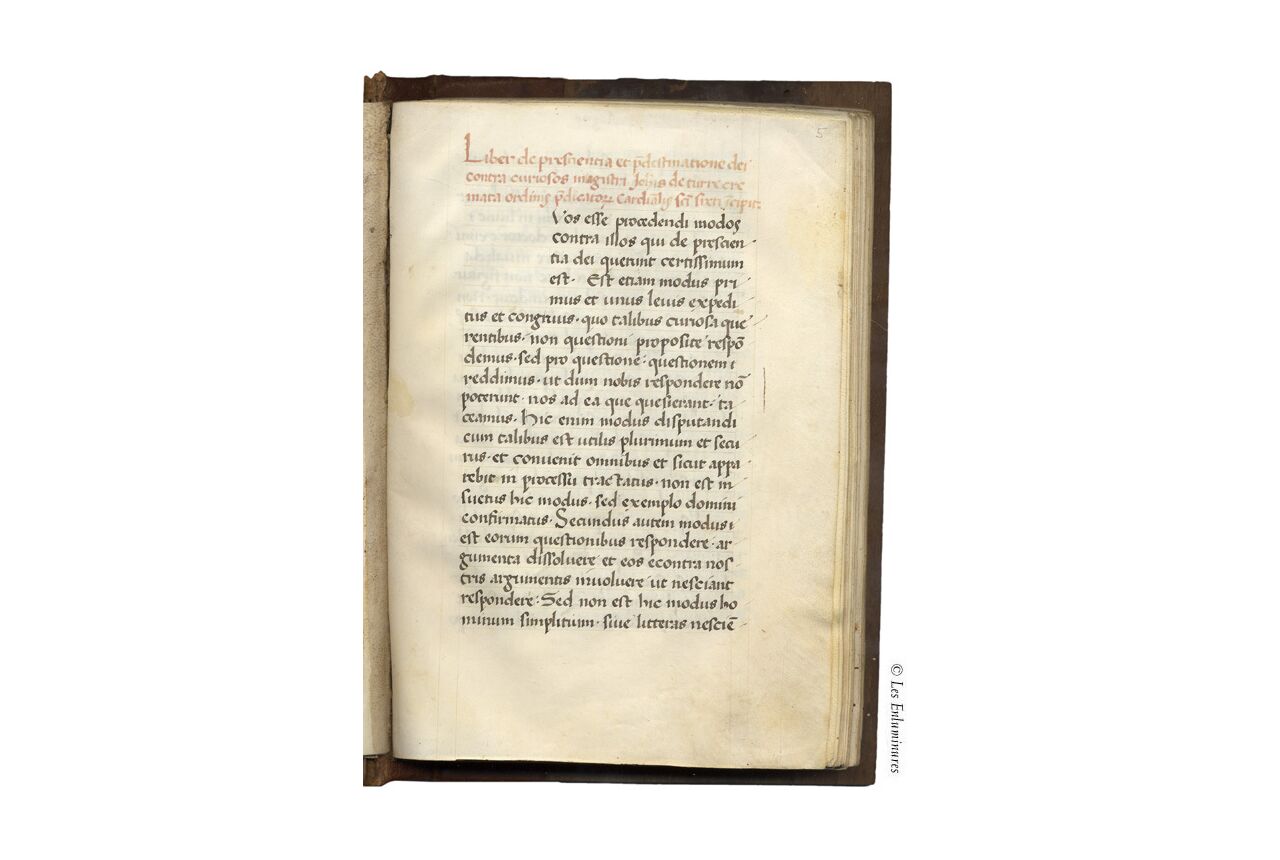 5
Liber de prescientia et p̄destinatione dei
contra curiosos magistri Joh̄is de turre cre
mata ordinis p̄dicatoꝝ Cardīalis sct̄i sixti īcipit
Vos esse procedendi modos
contra illos qui de prescien
tia dei querunt certissimum
est· Est etiam modus pri
mus et unus levis expedi
tus et congruus· quo talibus curiosa que
rentibus· non questioni proposite respō
demus· sed pro questione· questionem
reddimus· ut dum nobis respondere nō
poterunt· nos ad ea que quesierant· ta
ceamus· Hic enim modus disputandi
cum talibus est utilis plurimum et secu
rus· et convenit omnibus et sicut appa
rebit in processu tractatus· non est in
suetus hic modus· sed exemplo domini
confirmatus· Secundus autem modus
est eorum questionibus respondere· ar
gumenta dissolvere et eos econtra nos
tris argumentis involvere ut nesciant
respondere· Sed non est hic modus ho
minum simplitium· sive litteras nesciē
© Les Enluminures